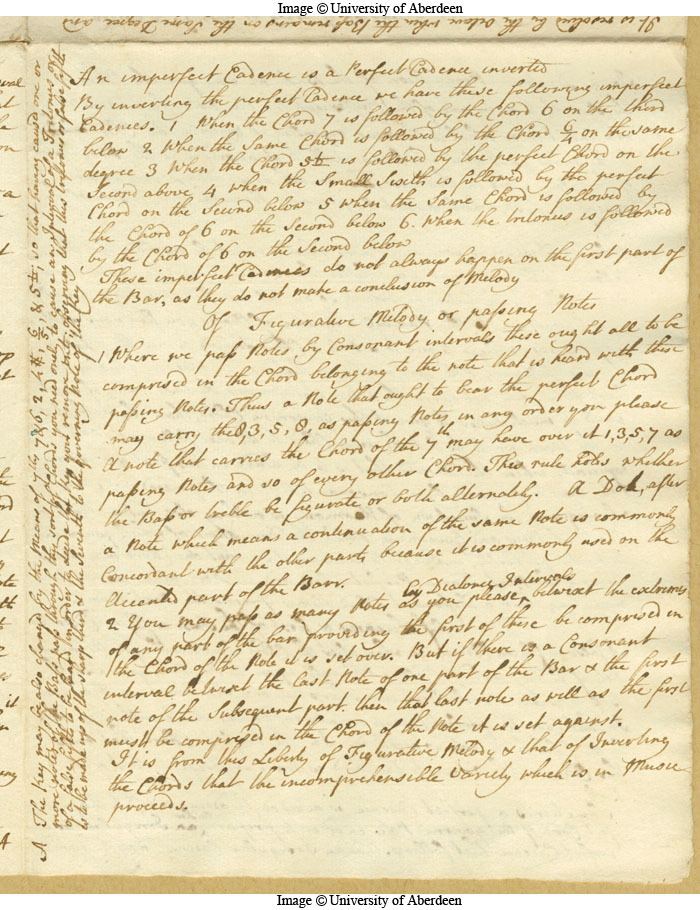 Image © University of Aberdeen
it is resolved by the Octave when the Bass remains on the same Degree and
An imperfect Cadence is a Perfect Cadence inverted
By inverting the perfect Cadence we have these following imperfect
Cadences. 1 When the Chord 7 is followed by the Chord 6 on the third
below 2 When the same Chord is followed by the Chord 6/4 on the same
degree 3 When the Chord 5th is followed by the perfect Chord on the
Second above 4 when the Small Sixth is followed by the perfect
Chord on the Second below 5 when the same Chord is followed by
the Chord of 6 on the Second below 6. When the tritonus is followed
by the Chord of 6 on the Second below
These imperfect Cadences do not always happen on the first part of
the Bar, as they do not make a conclusion of Melody
Of Figurative Melody or passing Notes
1 Where we pass Notes by Consonant intervals these ought all to be
comprised in the Chord belonging to the note that is heard with these
passing Notes. Thus a Note that ought to bear the perfect Chord
may carry the 8, 3, 5, 8, as passing Notes in any order you please
A note that carries the Chord of the 7th may have over it 1, 3, 5, 7 as
passing Notes and so of every other Chord. This rule holds whether
the Bass or treble be figurate or both alternately. A Dot, after
a Note which means a continuation of the same Note is commonly
Concordant with the other parts because it is commonly used on the
Accented part of the Barr.
by Diatonic Intervals
2 You may pass as many Notes as you please ‸ betwixt the extremes
of any part of the bar providing the first of these be comprised in
the Chord of the Note it is set over. But if there is a Consonant
interval betwixt the last Note of one part of the Bar & the first
note of the Subsequent part. then that last note as well as the first
must be comprised in the Chord of the Note it is set against.
It is from this Liberty of Figurative Melody & that of Inverting
the Chords that the incomprehensible variety which is in Music
proceeds.
A The key may be also changed by the Means of the 7th, 6, 2, 4, so that having caused one or
more notes of the Bass pass through any sort of Chords you had only to cause any Interval of a Tritonus or
of a false fifth to be heard in order to decide the key
is to be made up of the sharp third & the Seventh to the governing Note of the key
Image © University of Aberdeen